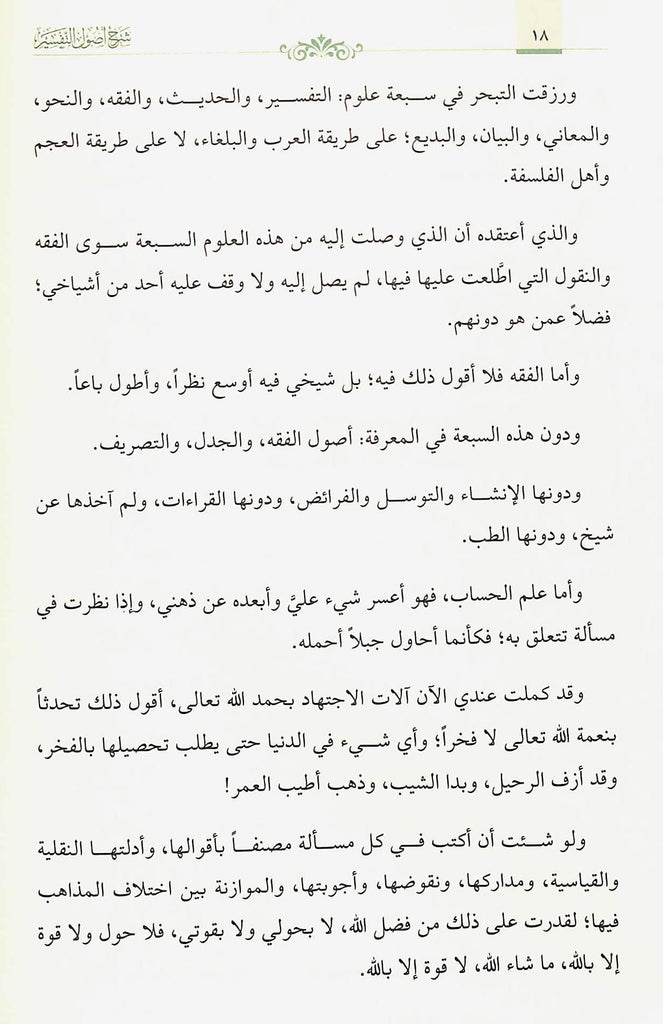 ١٨
شرح أصول التفسير
ورزقت التبحر في سبعة علوم: التفسير، والحديث، والفقه، والنحو،
والمعاني، والبيان، والبديع؛ على طريقة العرب والبلغاء، لا على طريقة العجم
وأهل الفلسفة.
والذي أعتقده أن الذي وصلت إليه من هذه العلوم السبعة سوى الفقه
والنقول التي اطَّلعت عليها فيها، لم يصل إليه ولا وقف عليه أحد من أشياخي؛
فضلاً عمن هو دونهم.
وأما الفقه فلا أقول ذلك فيه؛ بل شيخي فيه أوسع نظراً، وأطول باعاً.
ودون هذه السبعة في المعرفة: أصول الفقه، والجدل، والتصريف.
ودونها الإنشاء والتوسل والفرائض، ودونها القراءات، ولم آخذها عن
شيخ، ودونها الطب.
وأما علم الحساب، فهو أعسر شيء عليَّ وأبعده عن ذهني، وإذا نظرت في
مسألة تتعلق به؛ فكأنما أحاول جبلاً أحمله.
وقد كملت عندي الآن آلات الاجتهاد بحمد الله تعالى، أقول ذلك تحدثاً
بنعمة الله تعالى لا فخراً؛ وأي شيء في الدنيا حتى يطلب تحصيلها بالفخر،
وقد أزف الرحيل، وبدا الشيب، وذهب أطيب العمر!
ولو شئت أن أكتب في كل مسألة مصنفاً بأقوالها، وأدلتها النقلية
والقياسية، ومداركها، ونقوضها، وأجوبتها، والموازنة بين اختلاف المذاهب
فيها؛ لقدرت على ذلك من فضل الله، لا بحولي ولا بقوتي، فلا حول ولا قوة
إلا بالله، ما شاء الله، لا قوة إلا بالله.